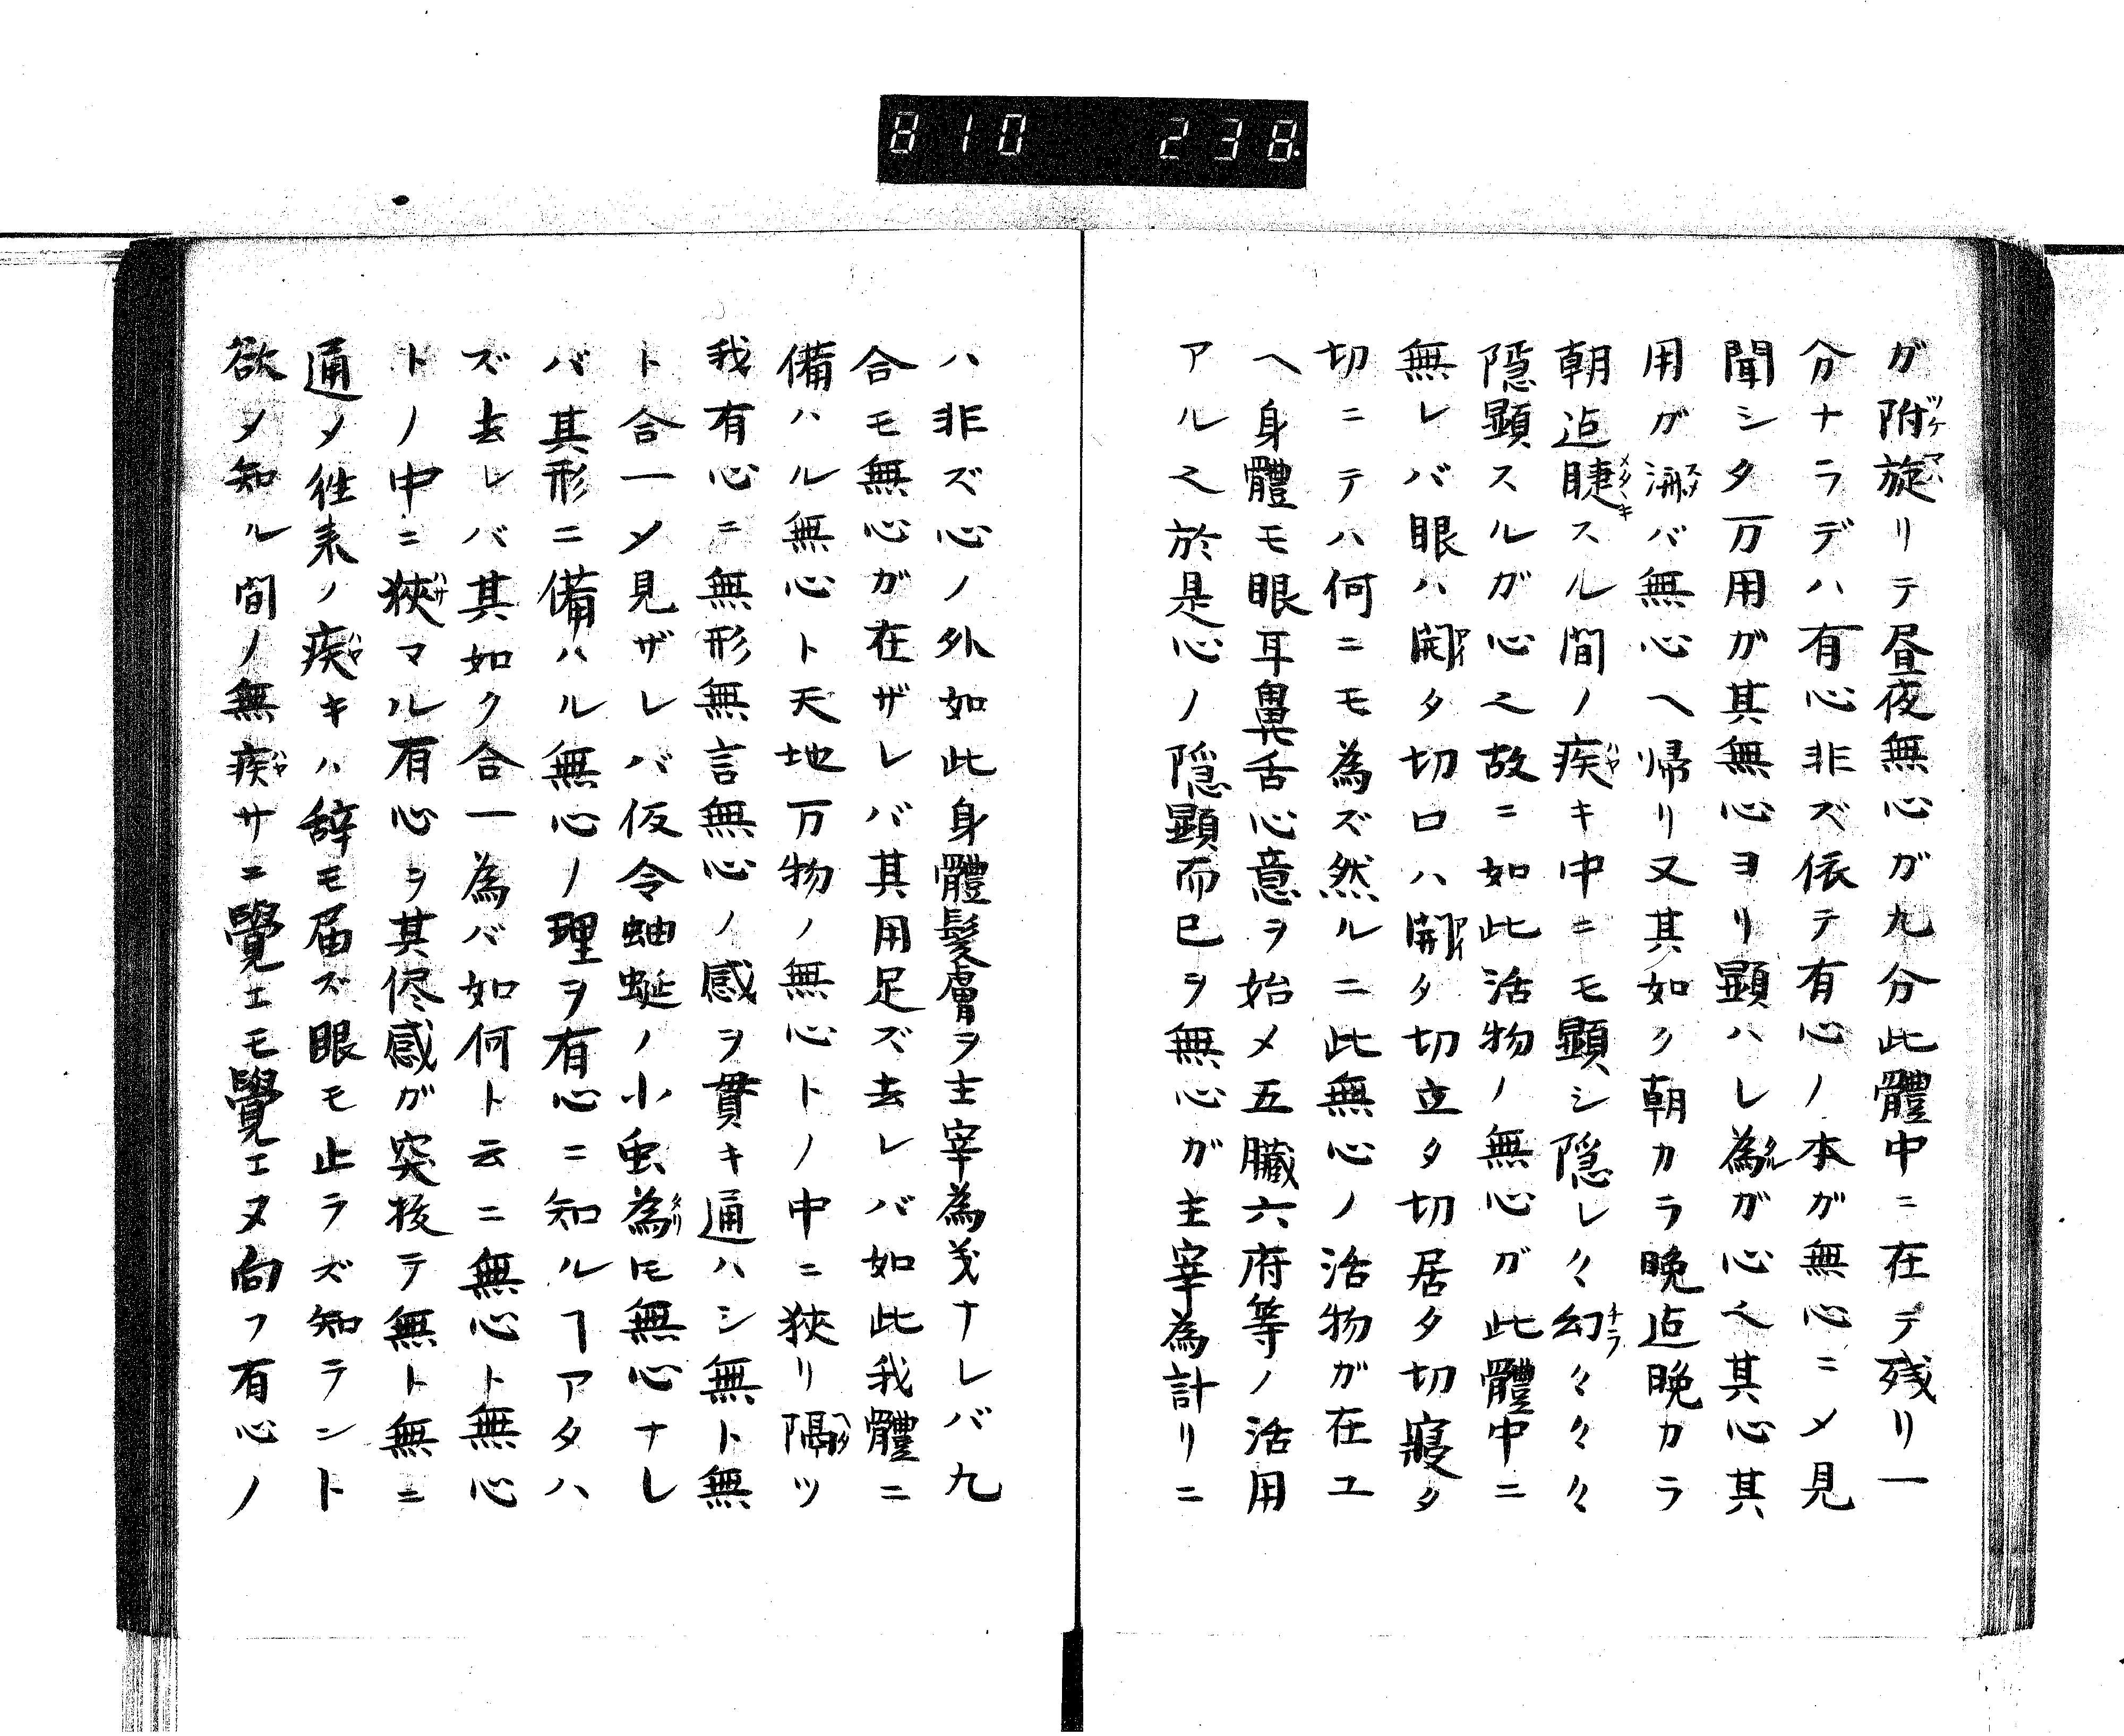 810 238.
ガ附旋リテ昼夜無心ガ九分此體中ニ在テ残リ一
分ナラデハ有心非ズ依テ有心ノ本ガ無心ニメ見
聞シタ万用ガ其無心ヨリ顕ハレ為ガ心之其心其
用ガ済バ無心ヘ帰リ又其如ク朝カラ晩迠晩カラ
朝迠睫スル間ノ疾キ中ニモ顕シ隠レ々幻々々々
隠顕スルガ心之故ニ如此活物ノ無心ガ此體中ニ
無レバ眼ハ開タ切口ハ開タ切立タ切居タ切寢タ
切ニテハ何ニモ為ズ然ルニ此無心ノ活物ガ在ユ
ヘ身體モ眼耳鼻舌心意ヲ始メ五臓六府等ノ活用
アル之於是心ノ隠顕而已ヲ無心ガ主宰為計リニ
ハ非ズ心ノ外如此身體髪膚ヲ主宰為㦮ナレバ九
合モ無心ガ在ザレバ其用足ズ去レバ如此我體ニ
備ハル無心ト天地万物ノ無心トノ中ニ狹リ隔ツ
我有心ニ無形無言無心ノ感ヲ貫キ通ハシ無ト無
ト合一メ見ザレバ仮令蚰蜒ノ小虫為𪜈無心ナレ
バ其形ニ備ハル無心ノ理ヲ有心ニ知ルヿアタハ
ズ去レバ其如ク合一為バ如何ト云ニ無心ト無心
トノ中ニ狹マル有心ヲ其侭感ガ突抜テ無ト無ニ
通メ徃来ノ疾キハ辞モ届ズ眼モ止ラズ知ラント
欲メ知ル間ノ無疾サニ覺エモ覺エヌ向フ有心ノ
ツケ マハ
スメ
タル
メタヽキ
ハヤ
ナラ
アイ
アイ
ヘダ
タリ
ハサ
ハヤ
ハヤ